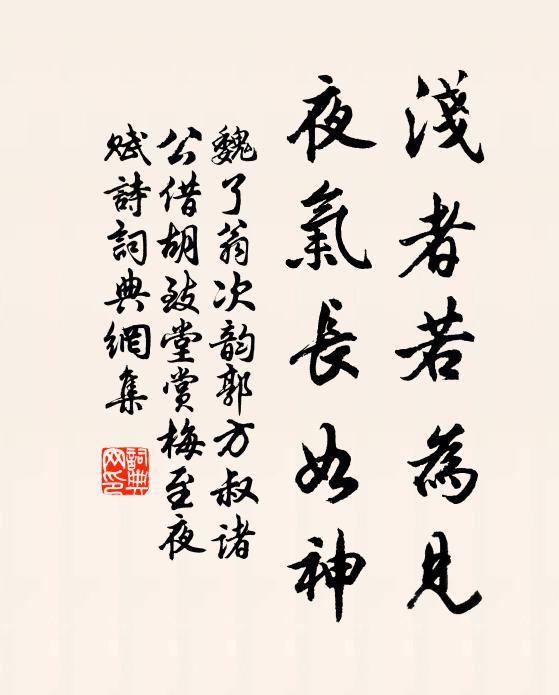 淺者若為見
夜氣長如神
魏了翁次韵郭方叔諸
公借胡致堂賞梅至夜
賦詩詞典網集
詞典
网印